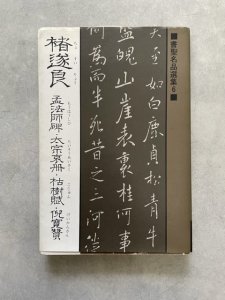 ■書聖名品選集6■
矣至如白鹿貞松青牛
盤魄山崖表裏桂何事
何為而半死昔之三河徙
褚遂良
孟法師碑・太宗哀册・枯樹賦・倪寛賛